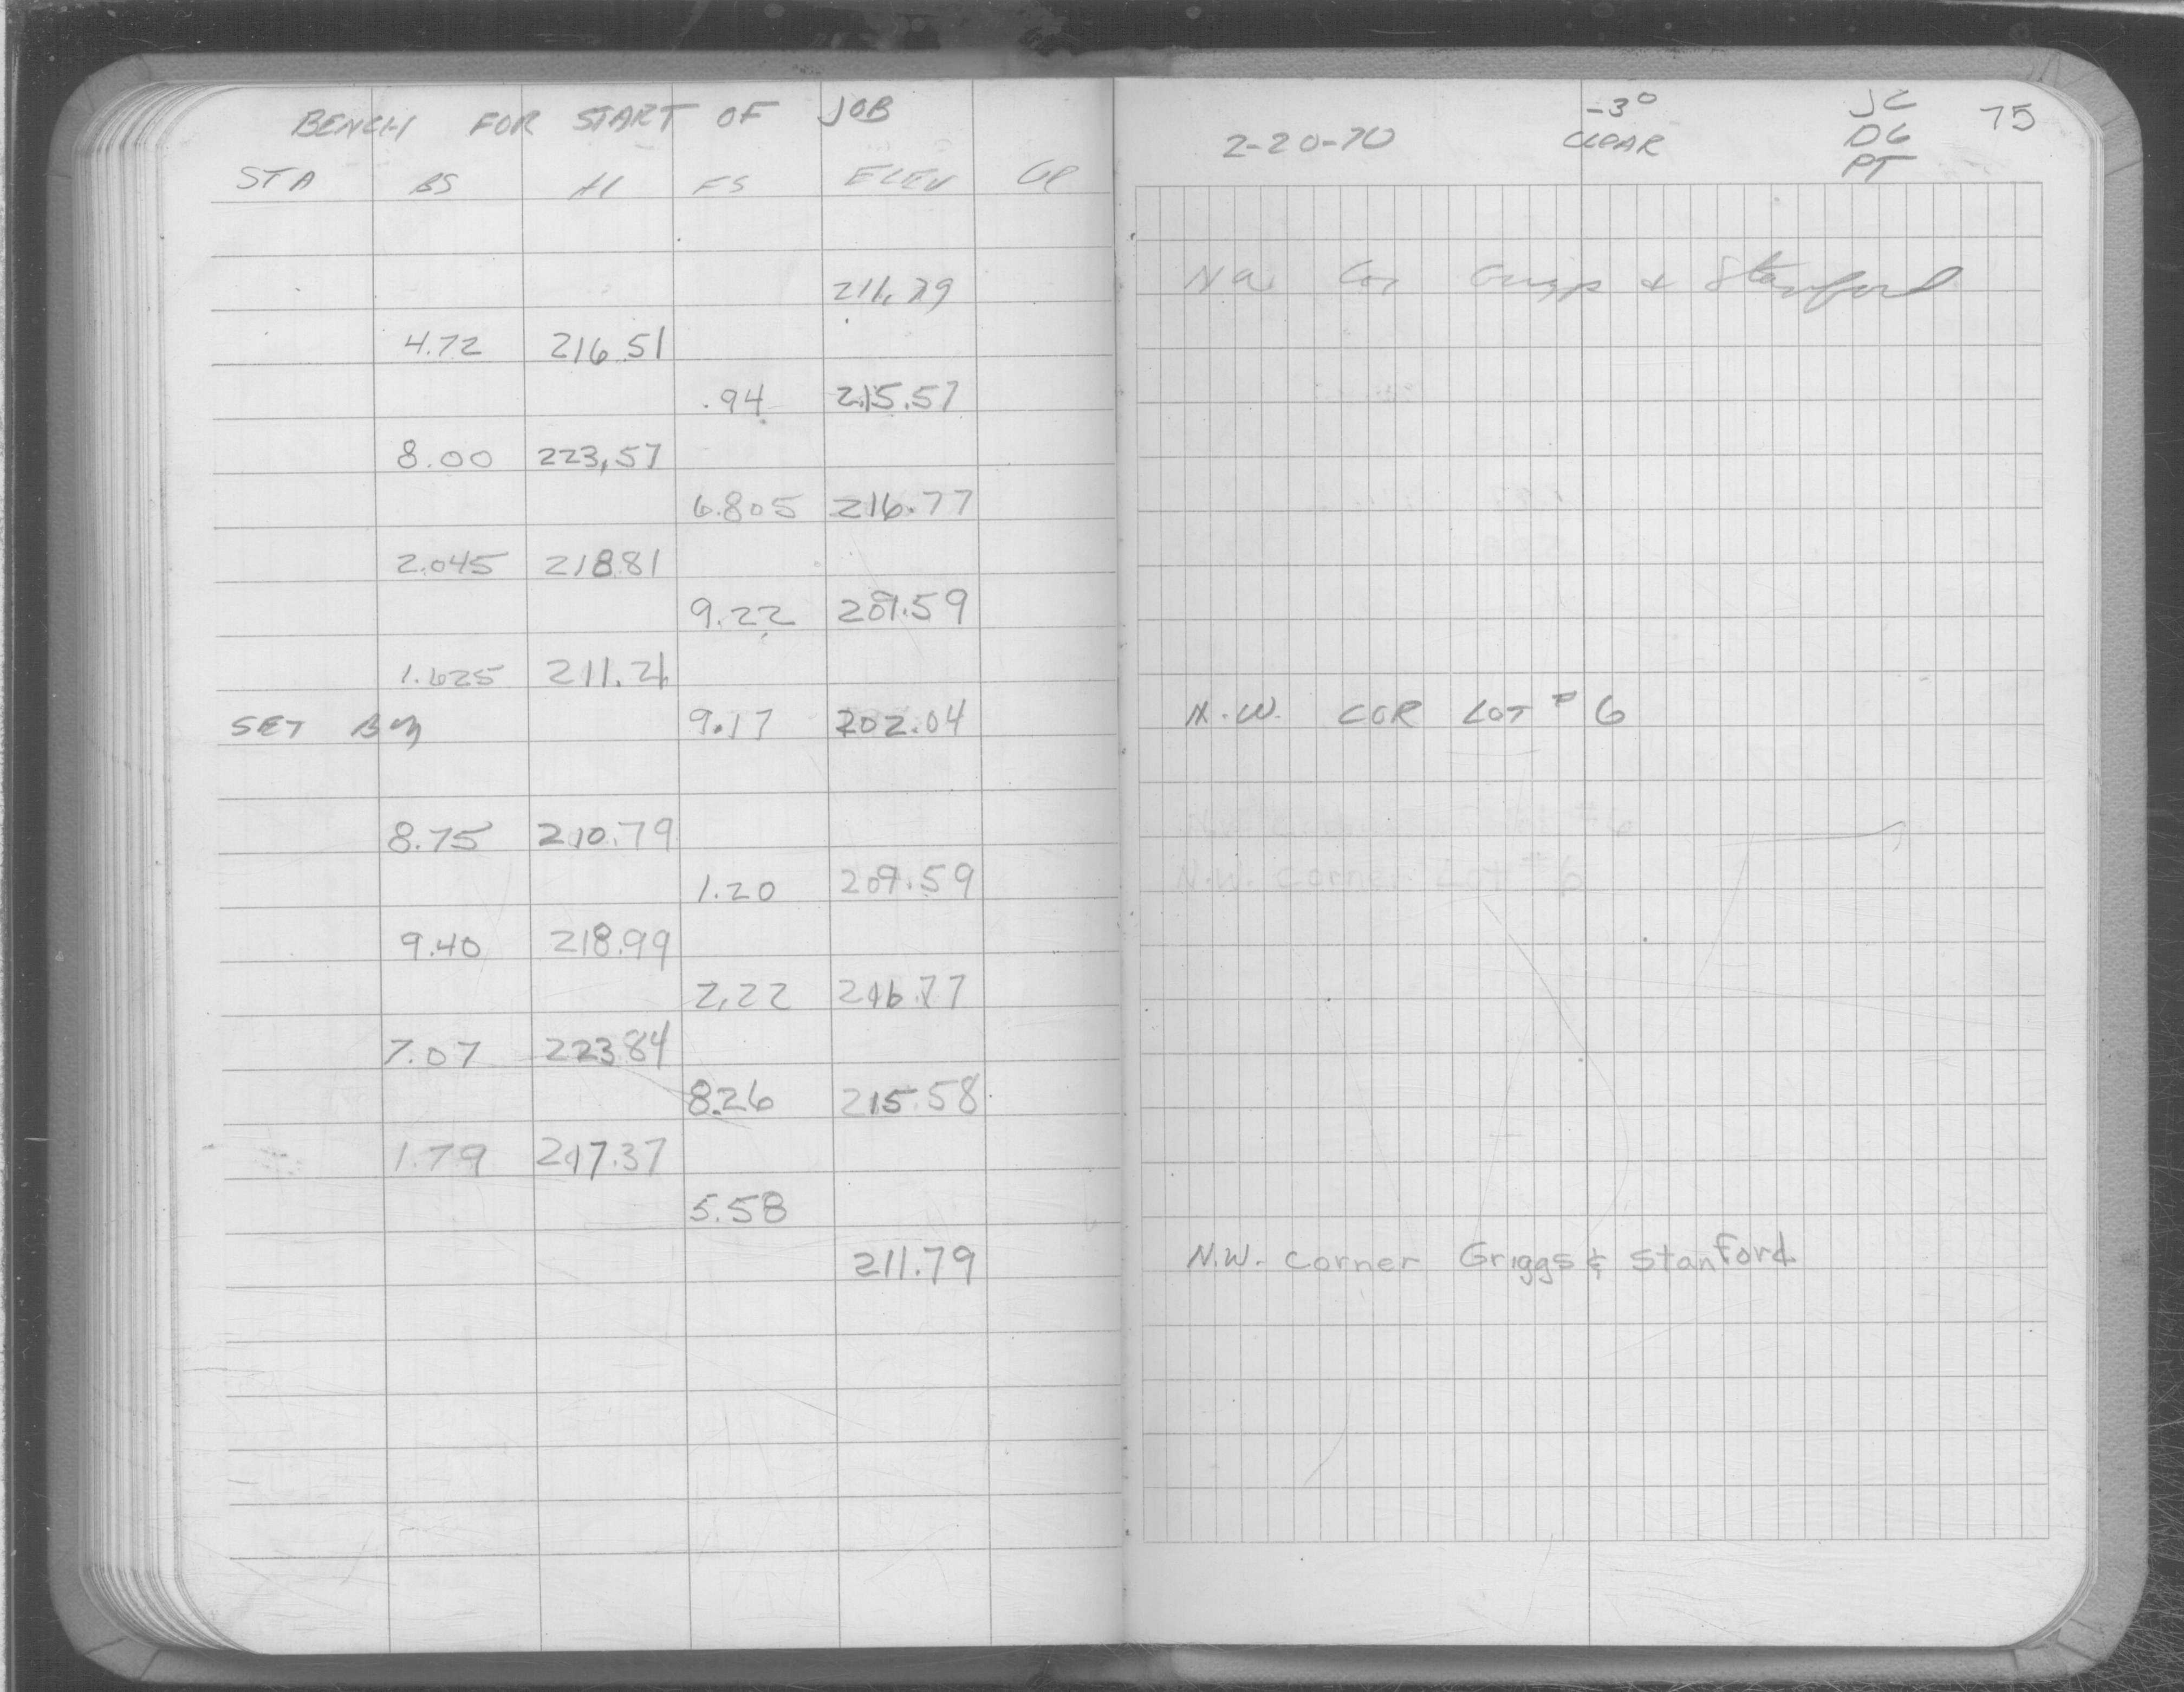 BENCH FOR START OF JOB
STA BS HI FS ELEV GR
211.79
4.72 216.51
.94 215.57
8.00 223.57
6.805 216.77
2.045 218.81
9.22 209.59
1.625 211.21
SET BM 9.17 202.04
8.75 210.79
1.20 209.59
9.40 218.99
2.22 216.77
7.07 223.84
8.26 215.58
1.79 217.37
5.58
211.79
2-20-70 -3° CLEAR JC DG PT 75
NW Cor Griggs & Stanford
N.W. COR LOT # 6
N.W. Corner Lot #6
N.W. corner Griggs & Stanford